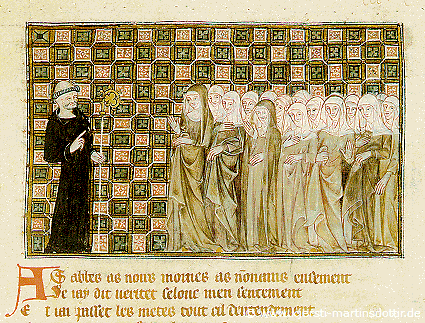 AS abbes as noirs moines as nonains ensement
Je iay dit veritet selonc men sentement
E t iai passet les metes tout
martinsdotter.de